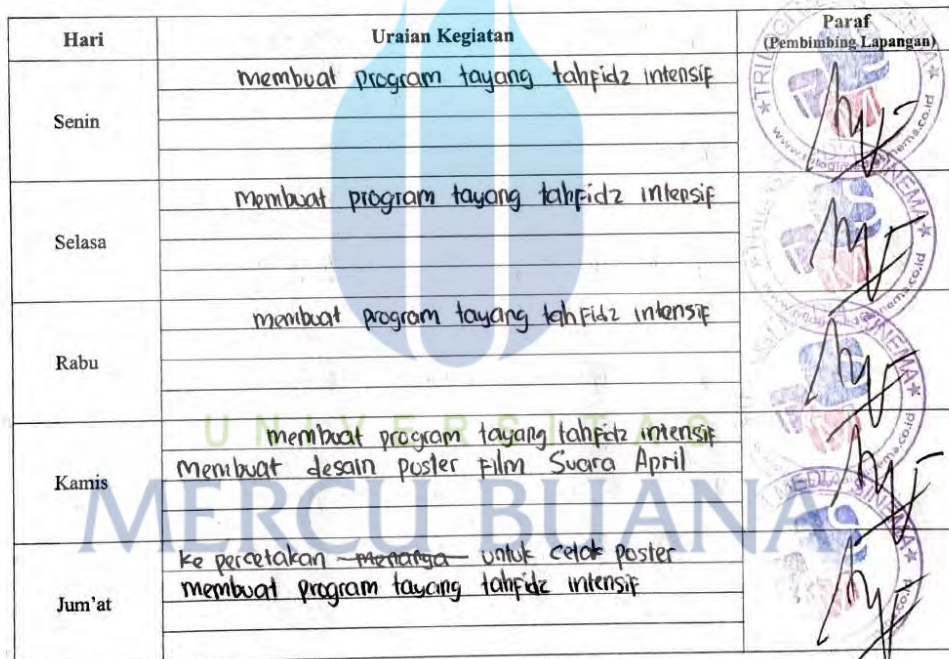 Hari Uraian Kegiatan Paraf
(Pembimbing Lapangan)
Senin
membuat program tayang tahfidz intensif
Selasa
membuat program tayang tahfidz intensif
Rabu
membuat program tayang tahfidz intensif
Kamis
membuat program tayang tahfidz intensif
Membuat desain poster Film Suara April
Jum'at
ke percetakan untuk cetak poster
membuat program tayang tahfidz intensif
UNIVERSITAS
MERCU BUANA